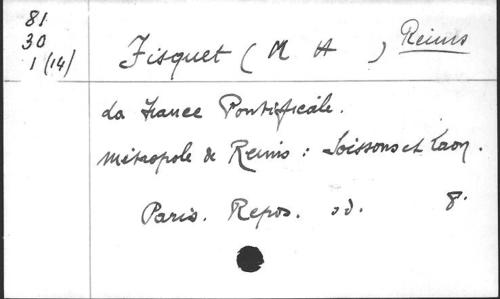 81
30
1 (14)
Fisquet ( M H ) Reims
La France Pontificale.
Métropole de Reims : Soissons et Laon.
Paris. Repos. s d. 8.